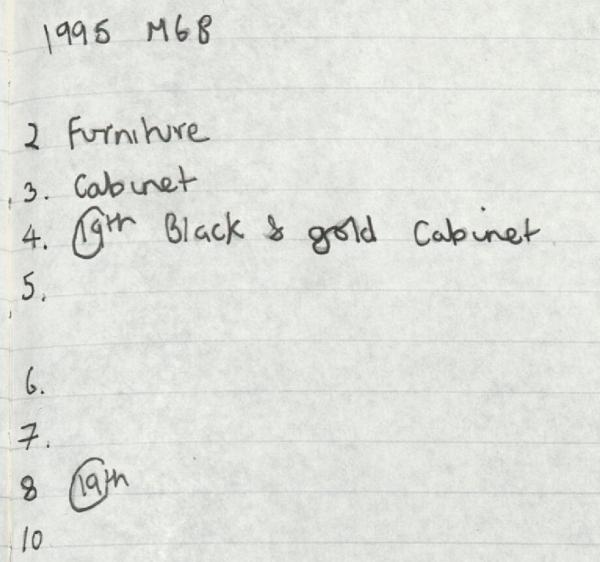 1995 M68
2 Furniture
3. Cabinet
4. 19th Black & gold Cabinet
5.
6.
7.
8 19th
10